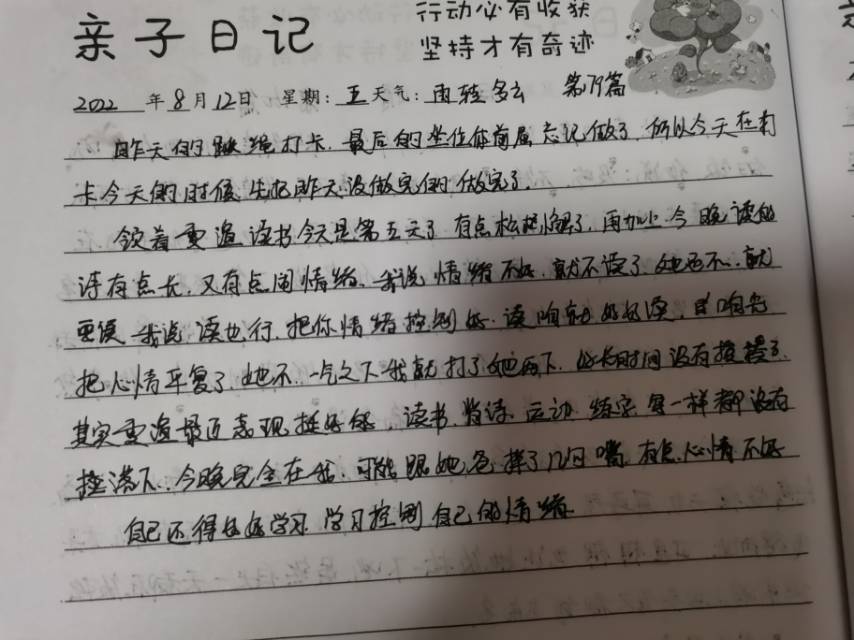 亲子日记
行动必有收获
坚持才有奇迹
2022年8月12日 星期:五 天气:雨转多云 第79篇
昨天的跳绳打卡,最后的坐位体前屈忘记做了,所以今天在打
卡今天的时候,先把昨天没做完的做完了。
领着重渲读书今天是第五天了,有点松懈了,再加上今晚读的
诗有点长,又有点闹情绪,我说情绪不好,就不读了,她还不,就
要读,我说读也行,把你情绪控制好,读咱就好好读,要不咱先
把心情平复了,她不,一气之下我就打了她两下,好长时间没有揍
其实重渲最近表现挺好的,读书,背诗,运动,练字,每一样都没有
落下,今晚完全在我,可能跟她爸拌了几句嘴,有点心情不好
自己还得好好学习,学习控制自己的情绪。